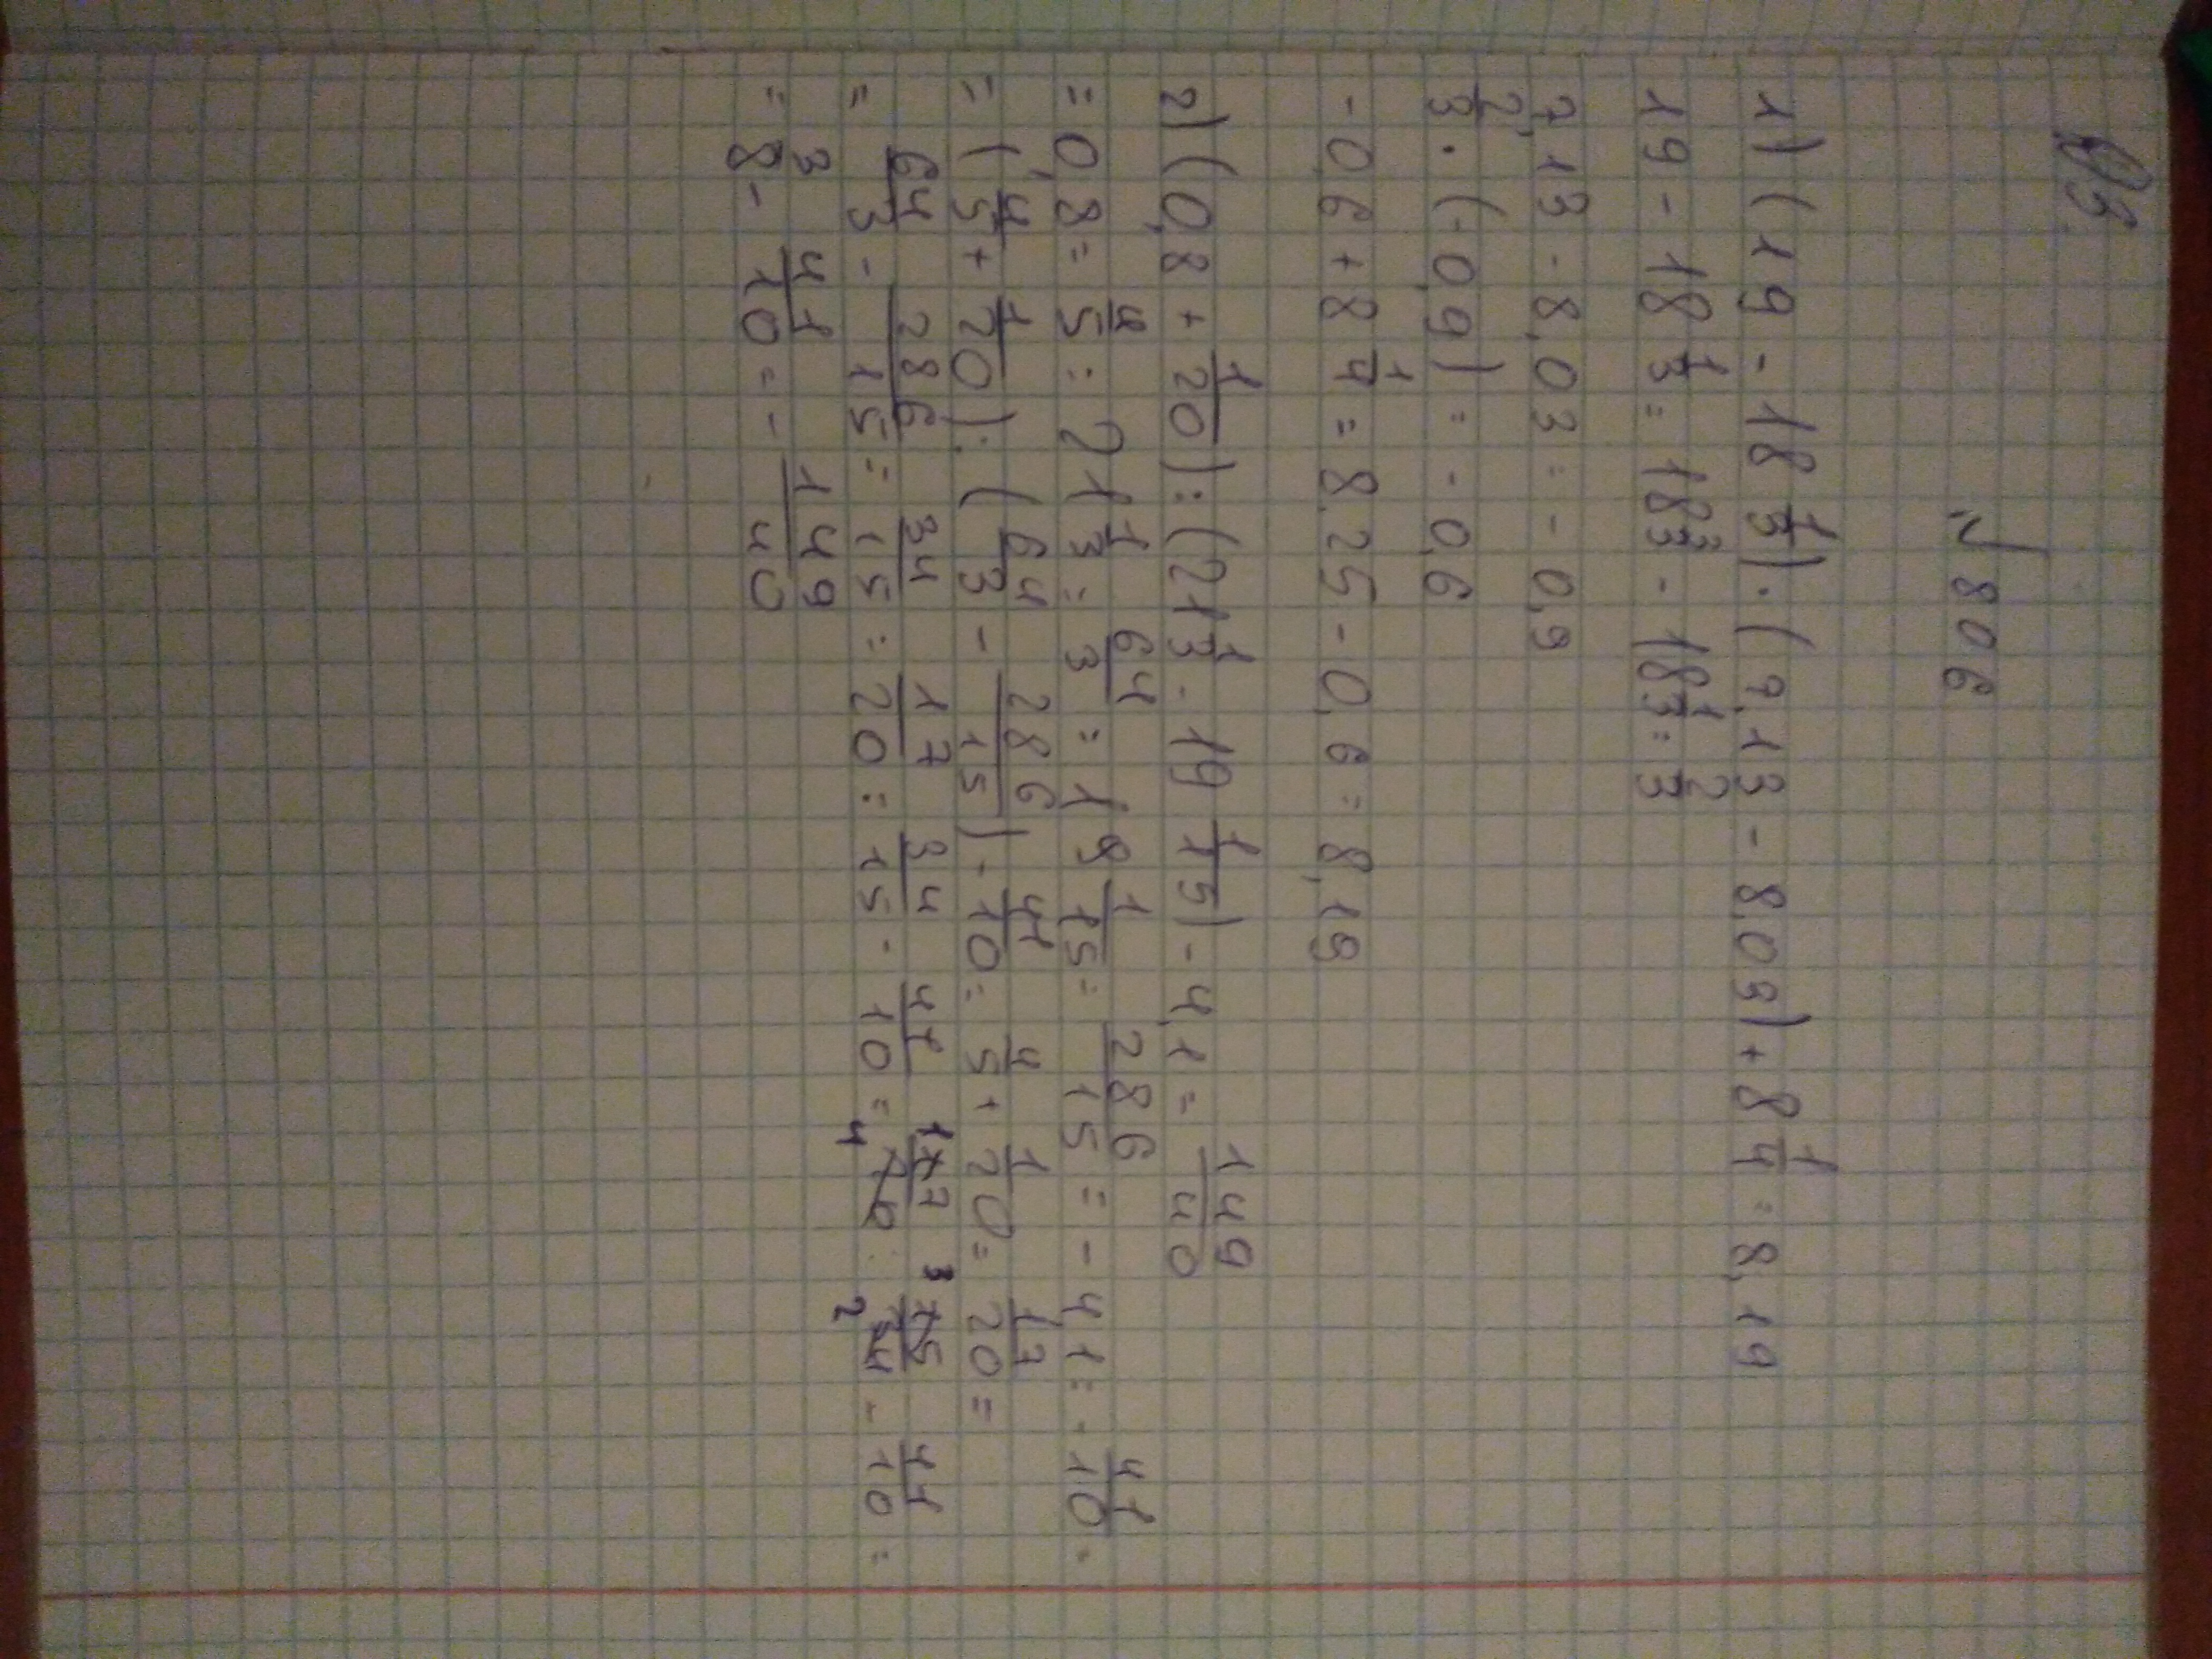 № 806
1) (19 - 18 1/3) · (7,13 - 8,03) + 8 1/4 = 8,19
19 - 18 1/3 = 18 3/3 - 18 1/3 = 2/3
7,13 - 8,03 = - 0,9
2/3 · (-0,9) = - 0,6
- 0,6 + 8 1/4 = 8,25 - 0,6 = 8,19
2) (0,8 + 1/20) : (21 1/3 - 19 1/15) - 4,1 = 149/40
= 0,8 = 4/5 : 21 1/3 = 64/3 = 19 1/15 = 286/15 = - 4,1 = - 41/10 =
= (4/5 + 1/20) : (64/3 - 286/15) - 41/10 = 4/5 + 1/20 = 17/20 =
= 64/3 - 286/15 = 34/15 = 17/20 : 34/15 - 41/10 = 17/20 · 15/34 - 41/10 =
= 3/8 - 41/10 = - 149/40